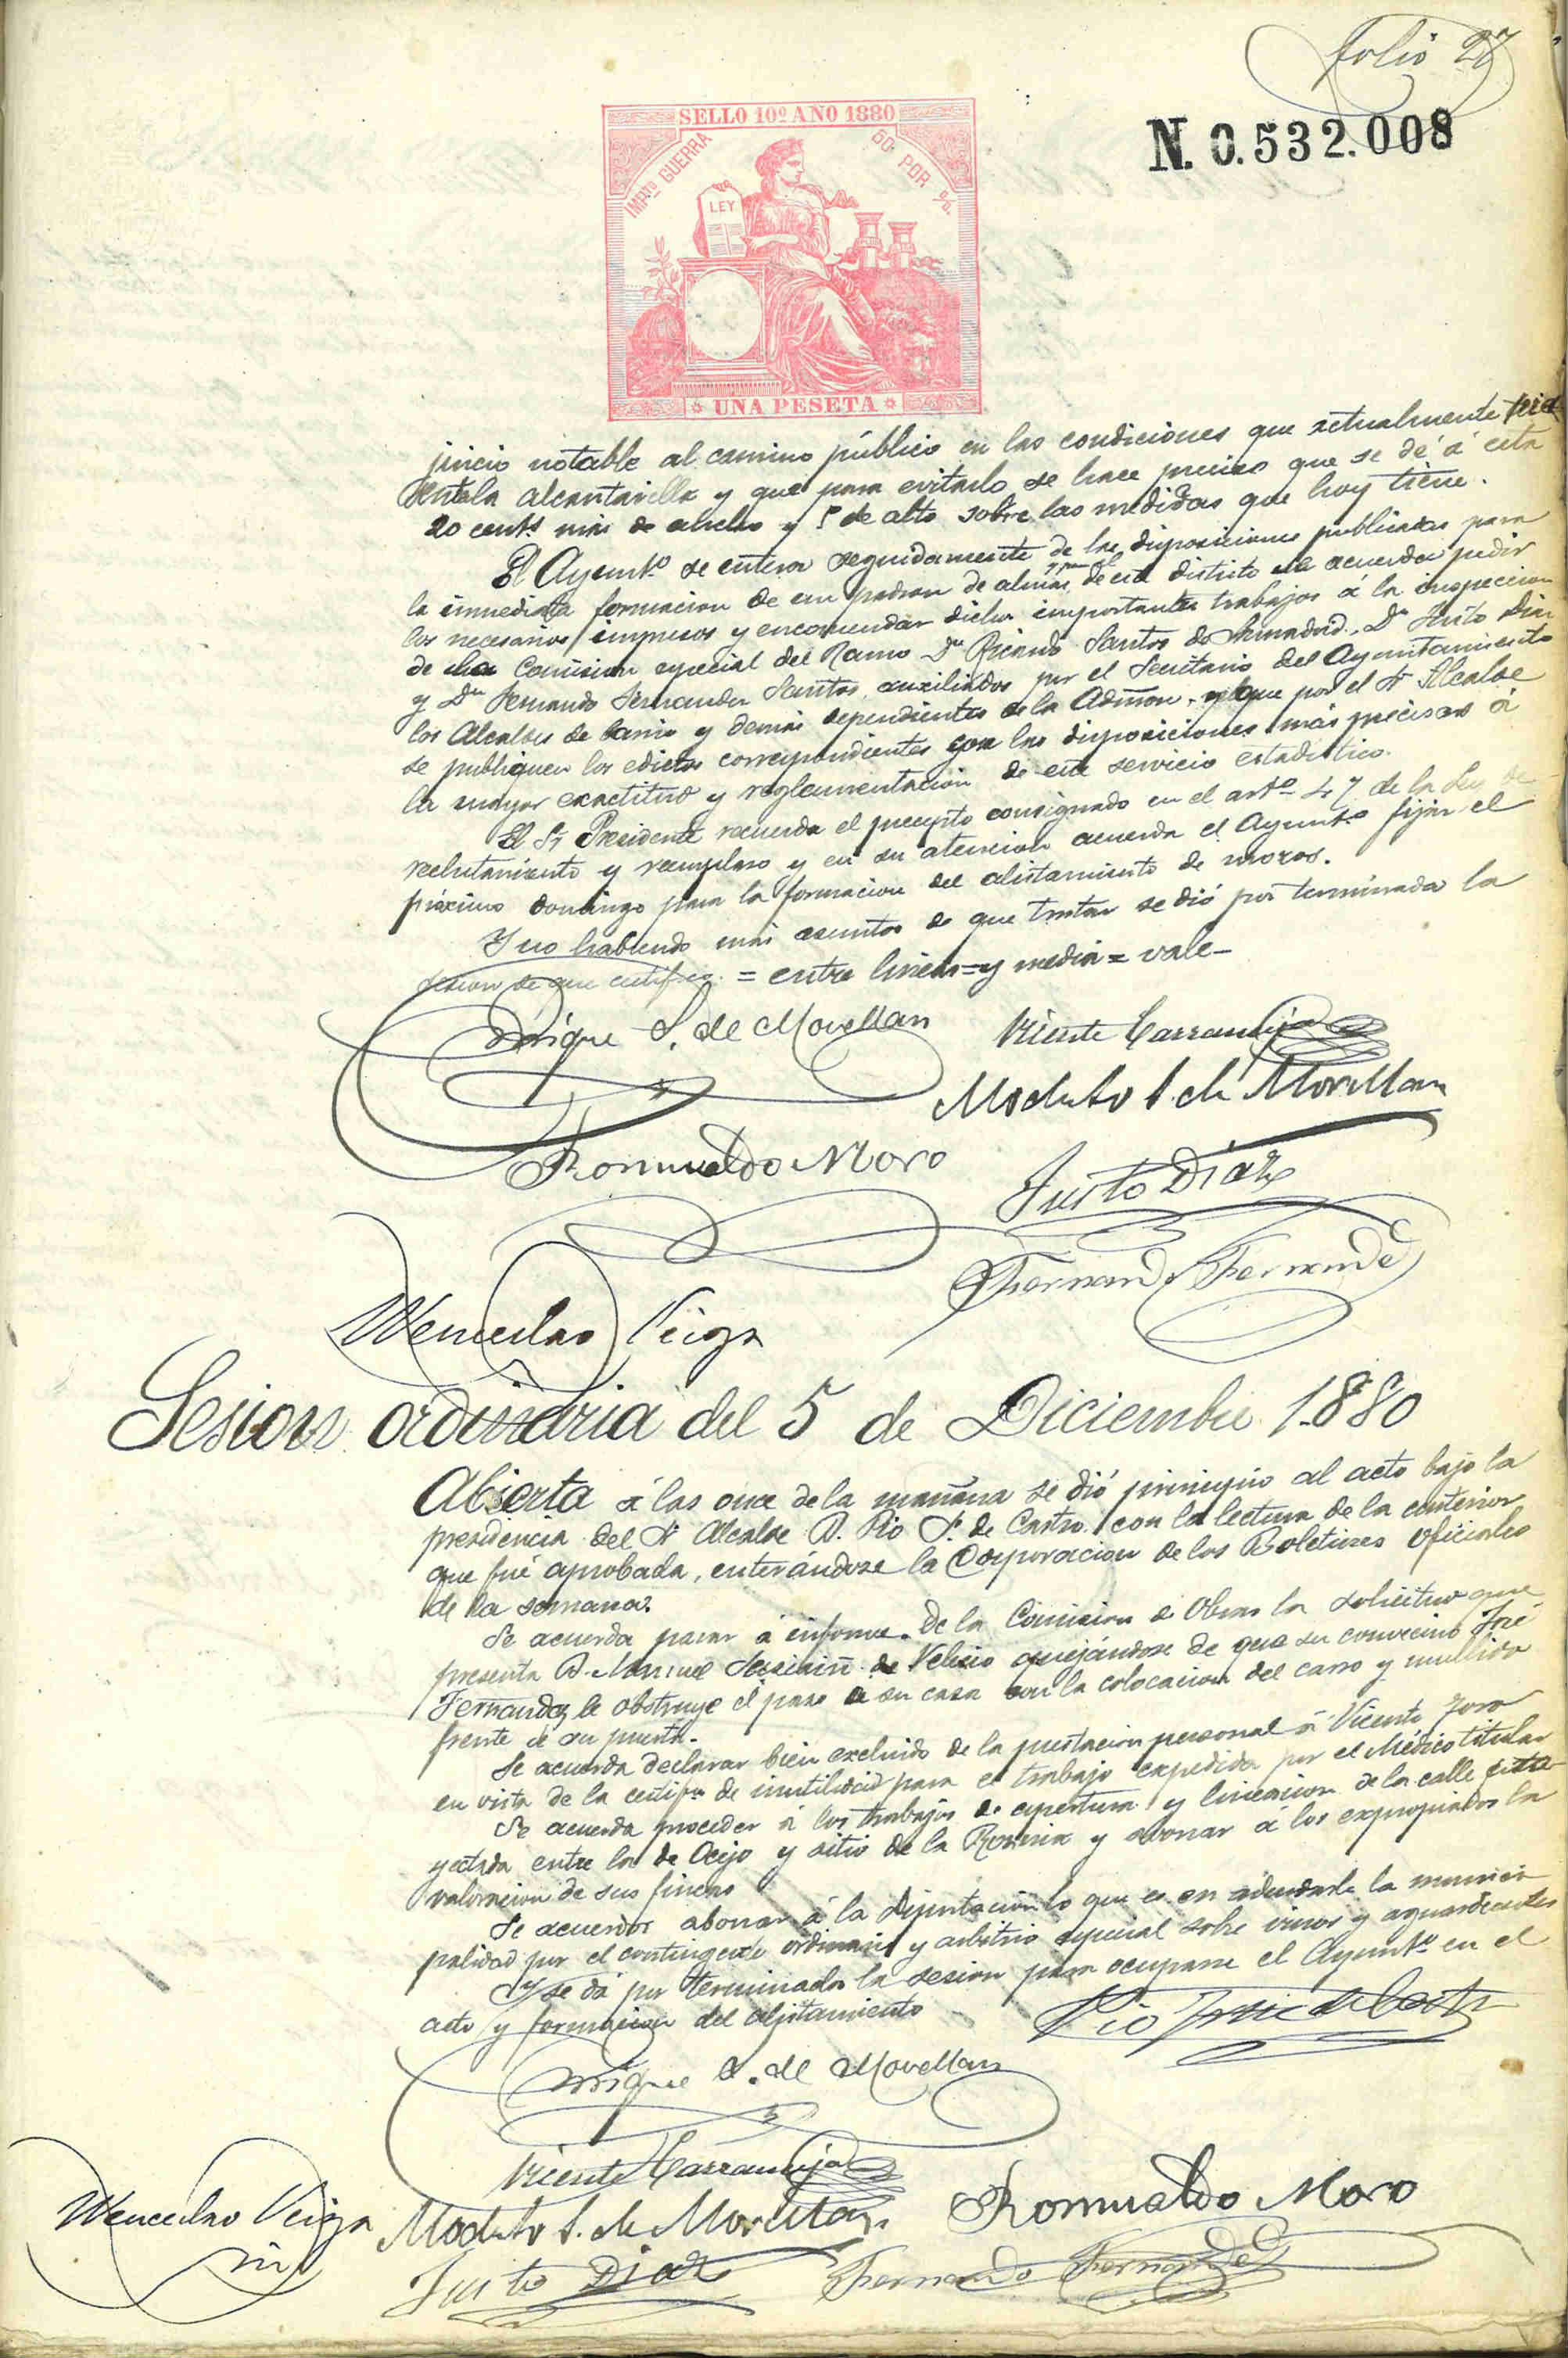 Folio 27
N. 0.532.008
SELLO 10º AÑO 1880
IMPTO GUERRA
50 POR %.
LEY
UNA PESETA
juicio notable al camino público en las condiciones que actualmente
senta la alcantarilla y que para evitarlo se hace preciso que se dé á esta
20 cents. más de ancho y 5 de alto sobre las medidas que hoy tiene.
El Ayuntº se entera seguidamente de las disposiciones publicadas para
la inmediata formacion de un padron de almas de este distrito acuerda pedir
los necesarios impresos y encomendar dichos importantes trabajos á la inspeccion
de la Comision especial del Ramo Dn Ricardo Santos de Dn Justo Diaz
y Dn Fernando Fernandez Santos, auxiliados por el Secretario del Ayuntamiento
los Alcaldes de barrio y demás dependientes de la Admon. y que por el Sr Alcalde
se publiquen los edictos correspondientes con las disposiciones más precisas á
la mayor exactitud y reglamentacion de este servicio estadistico.
El Sr Presidente recuerda el precepto consignado en el artº 47 de la Ley de
reclutamiento y reemplazo y en su atencion acuerda el Ayuntº fijar el
próximo domingo para la formacion del alistamiento de mozos.
Y no habiendo más asuntos de que tratar se dió por terminada la
sesion de que certifico. = entre lineas = y media = vale -
Enrique S. de Movellan
Vicente Carrandeja
Modesto S. de Movellan
Romualdo Moro
Justo Diaz
Fernando Fernandez
Wenceslao Veiga
Sesion ordinaria del 5 de Diciembre 1880
Abierta á las once de la mañana se dió principio al acto bajo la
presidencia del Sr Alcalde D. Pio J. de Castro con la lectura de la anterior
que fué aprobada, enterándose la Corporacion de los Boletines oficiales
de la semana.
Se acuerda pasar á informe de la Comision de Obras la solicitud que
presenta D. Manuel de Velecio quejándose de que su convecino José
Fernandez le obstruye el paso á su casa con la colocacion del carro y mullido
frente á su puerta.
Se acuerda declarar bien excluido de la prestacion personal á Vicente Toro
en vista de la certifon de inutilidad para el trabajo expedida por el Médico titular
Se acuerda proceder á los trabajos de apertura y lineacion de la calle
yectada entre la de Ocejo y sitio de la y abonar á los expropiados la
valoracion de sus fincas
Se acuerda abonar á la Diputacion lo que es en adeudarla la munici
palidad por el contingente ordinario y arbitrio especial sobre vinos y aguardientes
Y se dá por terminada la sesion para ocuparse el Ayuntº en el
acto y formacion del alistamiento
Pio José de Castro
Enrique S. de Movellan
Vicente Carrandeja
Romualdo Moro
Wenceslao Veiga
Modesto S. de Movellan
Justo Diaz
Fernando Fernandez